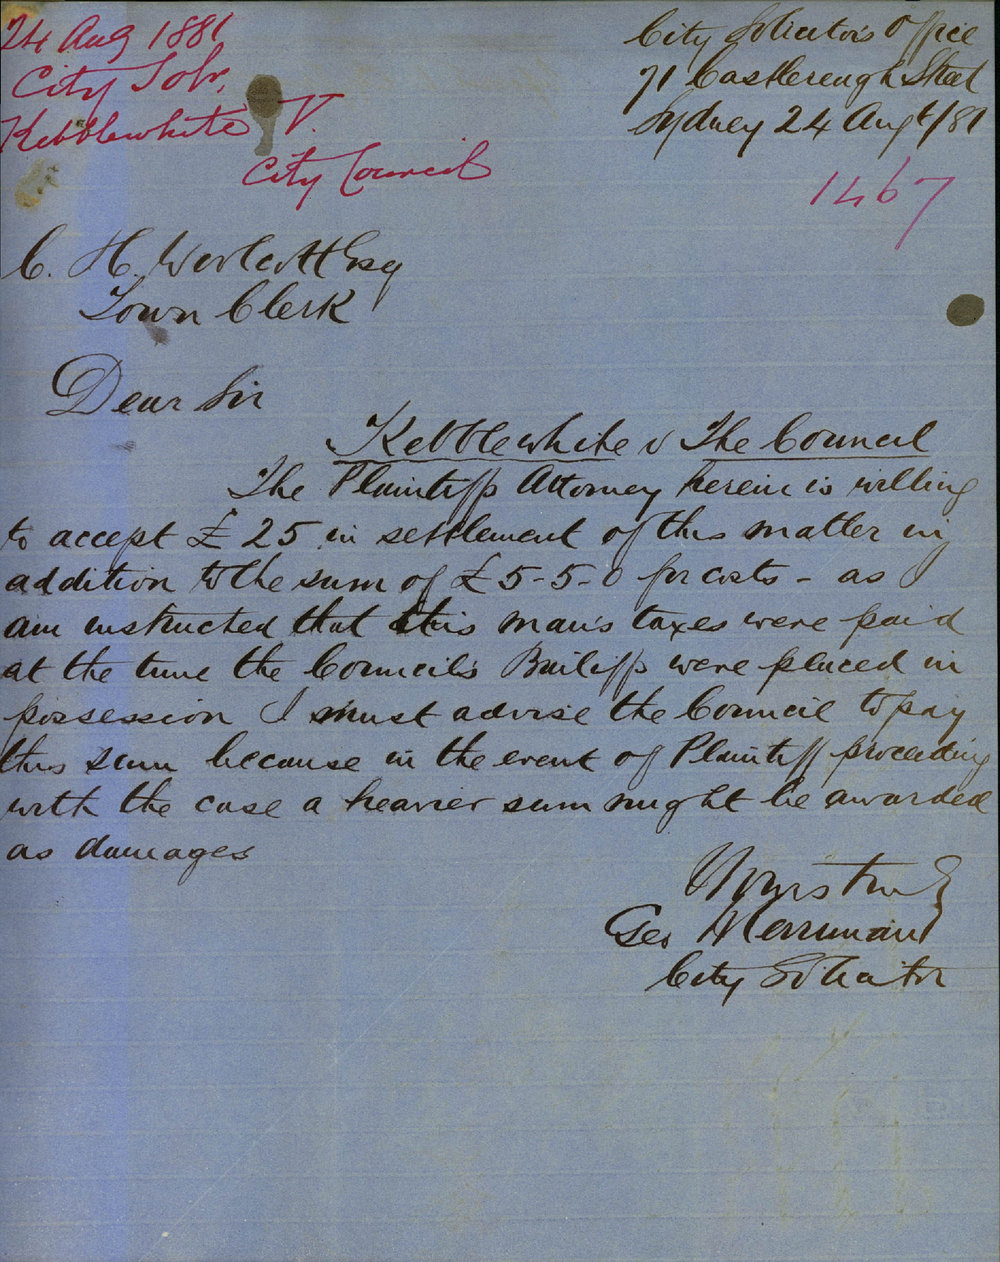 24 Aug 1881
City Solr.
Kebblewhite V.
City Council
City Solicitor's Office
71 Castlereagh Street
Sydney 24 Augt/81
1467
C. H. Woolcott Esq
Town Clerk
Dear Sir
Kebblewhite v The Council
The Plaintiffs Attorney herein is willing
to accept £25 in settlement of this matter in
addition to the sum of £5-5-0 for costs - as I
am instructed that this man's taxes were paid
at the time the Council's Bailiffs were placed in
possession I must advise the Council to pay
this sum because in the event of Plaintiff proceeding
with the case a heavier sum might be awarded
as damages
Yours truly
Geo Merriman
City Solicitor